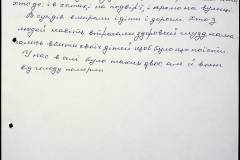 хто де: і в хатах, і на подвір'ї, і прямо на вулиці.
В сусідів вмирали і діти і дорослі. Хто з
людей навіть втрачали здоровий глузд, нама-
гались вбити своїх дітей щоб було що поїсти.
У нас в селі було таких двоє, але й вони
від голоду померли.